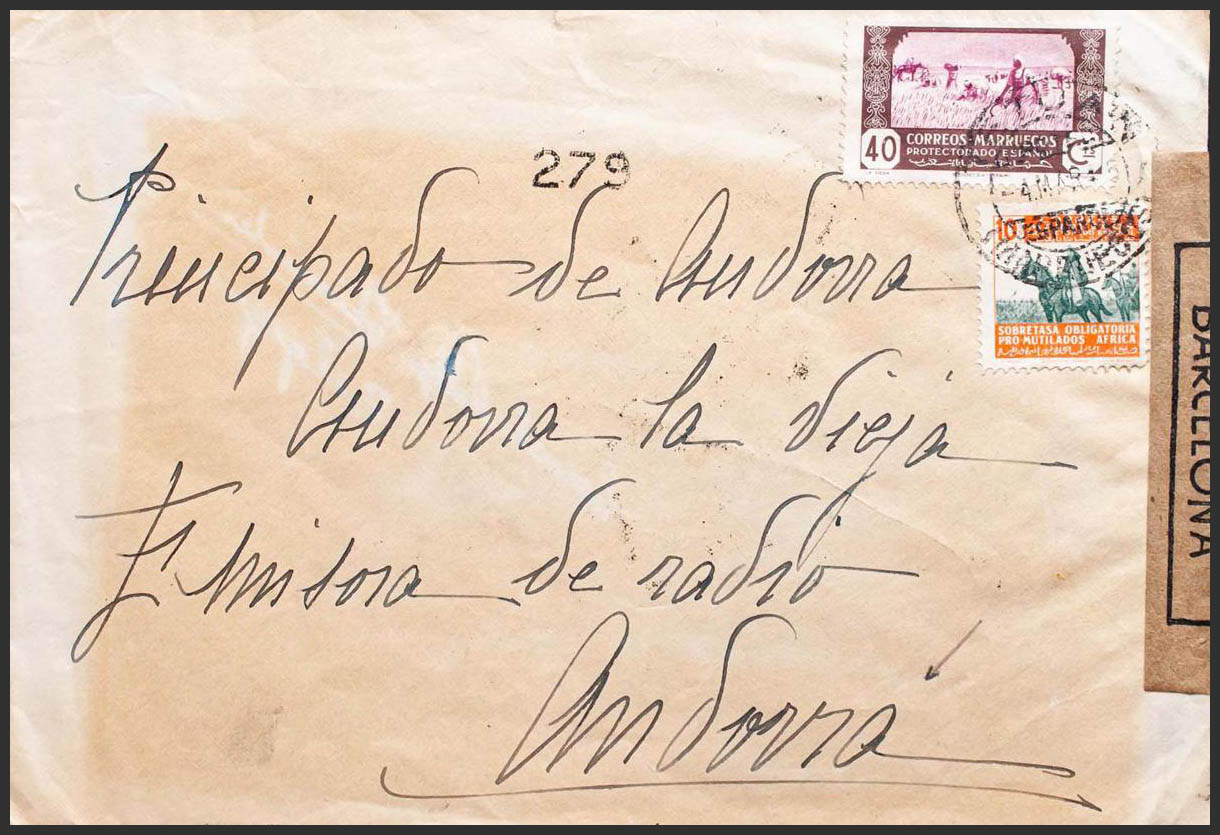 CORREOS·MARRUECOS
PROTECTORADO ESPAÑOL
40 Cts
279
10
SOBRETASA OBLIGATORIA
PRO MUTILADOS AFRICA
BARCELONA
Principado de Andorra
Andorra la vieja
Emisora de radio
Andorra